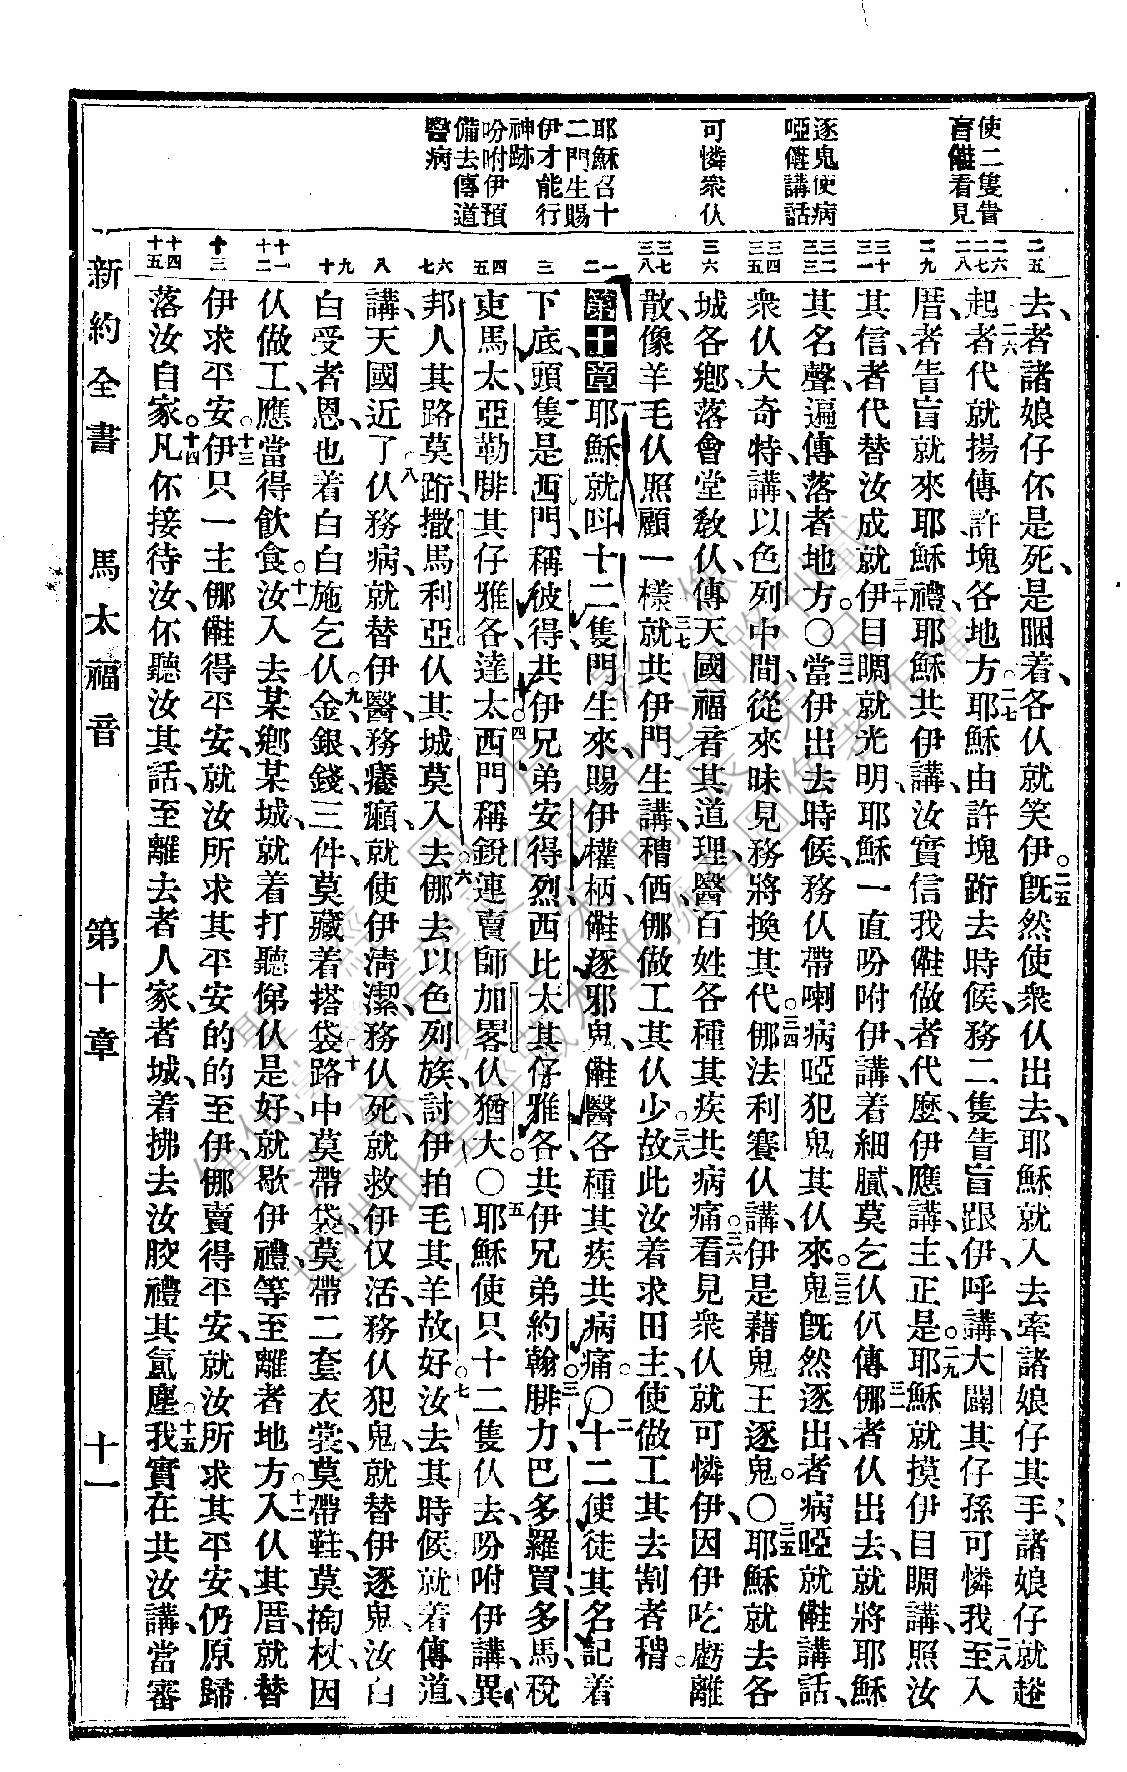 使二隻眚
盲㑣看見
逐鬼使病
啞㑣講話
可憐衆仈
耶穌召十
二門生賜
伊才能行
神跡
吩咐伊預
備去傳道
醫病
去、者諸娘仔伓是死、是睏着、各仈就笑伊。二五旣然使衆仈出去、耶穌就入去牽諸娘仔其手、諸娘仔就
起。二六者代就揚傳許塊各地方。二七耶穌由許塊跡去時候、務二隻眚盲跟伊、呼講、大闢其仔孫、可憐我。二八至入
厝、者眚盲就來耶穌禮、耶穌共伊講、汝實信我㑣做者代麽、伊應講、主、正是。二九耶穌就摸伊目睭講、照汝
其信、者代替汝成就。三十伊目睭就光明、耶穌一直吩咐伊講、着細膩、莫乞仈仈傳。三一挪者仈出去、就將耶穌
其名聲、遍傳落者地方。〇三二當伊出去時候、務仈帶喇病啞犯鬼其仈來。三三鬼旣然逐出、者病啞就㑣講話、
衆仈大奇特講、以色列中間、從來昧見務將換其代。三四挪法利賽仈講、伊是藉鬼王逐鬼。〇三五耶穌就去各
城各鄉、落會堂敎仈、傳天國福音其道理、醫百姓各種其疾共病痛。三六看見衆仈、就可憐伊、因伊吃虧離
散、像羊毛仈照顧一樣。三七就共伊門生講、穧㑚、挪做工其仈少。三八故此汝着求田主、使做工其去割者穧。
第十章 一耶穌就呌十二隻門生來、賜伊權柄㑣逐邪鬼、㑣醫各種其疾共病痛。〇二十二使徒其名、記着
下底、頭隻是西門、稱彼得、共伊兄弟安得烈、西比太其仔雅各、共伊兄弟約翰。三腓力、巴多羅買、多馬、稅
吏馬太、亞勒腓其仔雅各、達太。四西門稱銳、連賣師加畧仈猶大。〇五耶穌使只十二隻仈去、吩咐伊講、異
邦人其路莫跡、撒馬利亞仈其城莫入去。六挪去以色列族、討伊拍毛其羊故好。七汝去其時候、就着傳道
講、天國近了。八仈務病、就替伊醫、務癢癩、就使伊清潔、務仈死、就救伊仅活、務仈犯鬼、就替伊逐鬼、汝白
白受者恩、也着白白施乞仈。九金銀錢三件、莫藏着搭袋。十路中莫帶袋、莫帶二套衣裳、莫帶鞋、莫掏杖、因
仈做工、應當得飮食。十一汝入去某鄉某城、就着打聽俤仈是好、就歇伊禮、等至離者地方。十二入仈其厝、就替
伊求平安。十三伊只一主挪㑣得平安、就汝所求其平安、的的至伊、挪賣得平安、就汝所求其平安、仍原歸
落汝自家。十四凡伓接待汝、伓聽汝其話、至離去者人家者城、着拂去汝骹禮其氲塵。十五我實在共汝講、當審
新約全書　馬太福音　第十章　十一